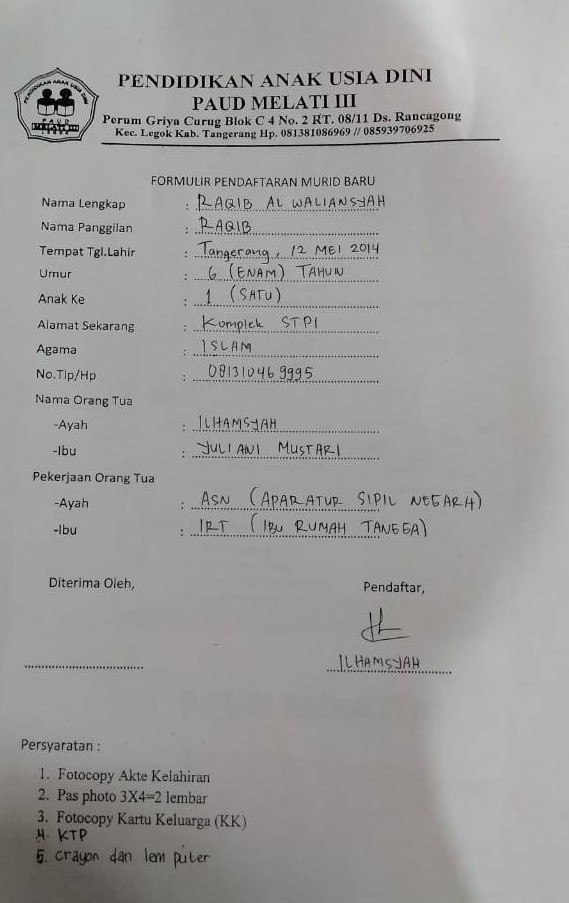 PENDIDIKAN ANAK USIA DINI
PAUD
PENDIDIKAN ANAK USIA DINI
PAUD MELATI III
Perum Griya Curug Blok C 4 No. 2 RT. 08/11 Ds. Rancagong
Kec. Legok Kab. Tangerang Hp. 081381086969 // 085939706925
FORMULIR PENDAFTARAN MURID BARU
Nama Lengkap : RAQIB AL WALIANSYAH
Nama Panggilan : RAQIB
Tempat Tgl.Lahir : Tangerang, 12 MEI 2014
Umur : 6 (ENAM) TAHUN
Anak Ke : 1 (SATU)
Alamat Sekarang : Komplek STPI
Agama : ISLAM
No.Tlp/Hp : 081310469995
Nama Orang Tua
-Ayah : ILHAMSYAH
-Ibu : YULIANI MUSTARI
Pekerjaan Orang Tua
-Ayah : ASN (APARATUR SIPIL NEGARA)
-Ibu : IRT (IBU RUMAH TANGGA)
Diterima Oleh, Pendaftar,
ILHAMSYAH
Persyaratan :
1. Fotocopy Akte Kelahiran
2. Pas photo 3X4=2 lembar
3. Fotocopy Kartu Keluarga (KK)
4. KTP
5. crayon dan lem puter